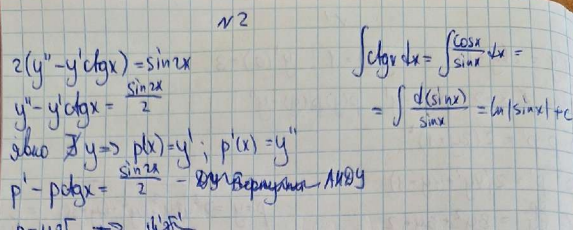 N2
2(y''-y'ctgx)=sin2x
y''-y'ctgx= sin2x/2
явно ∄ y => p(x)=y'; p'(x)=y''
p'-pctgx= sin2x/2 - ЛНДУ
∫ctgx dx = ∫cosx/sinx dx =
= ∫ d(sinx)/sinx = ln|sinx|+C